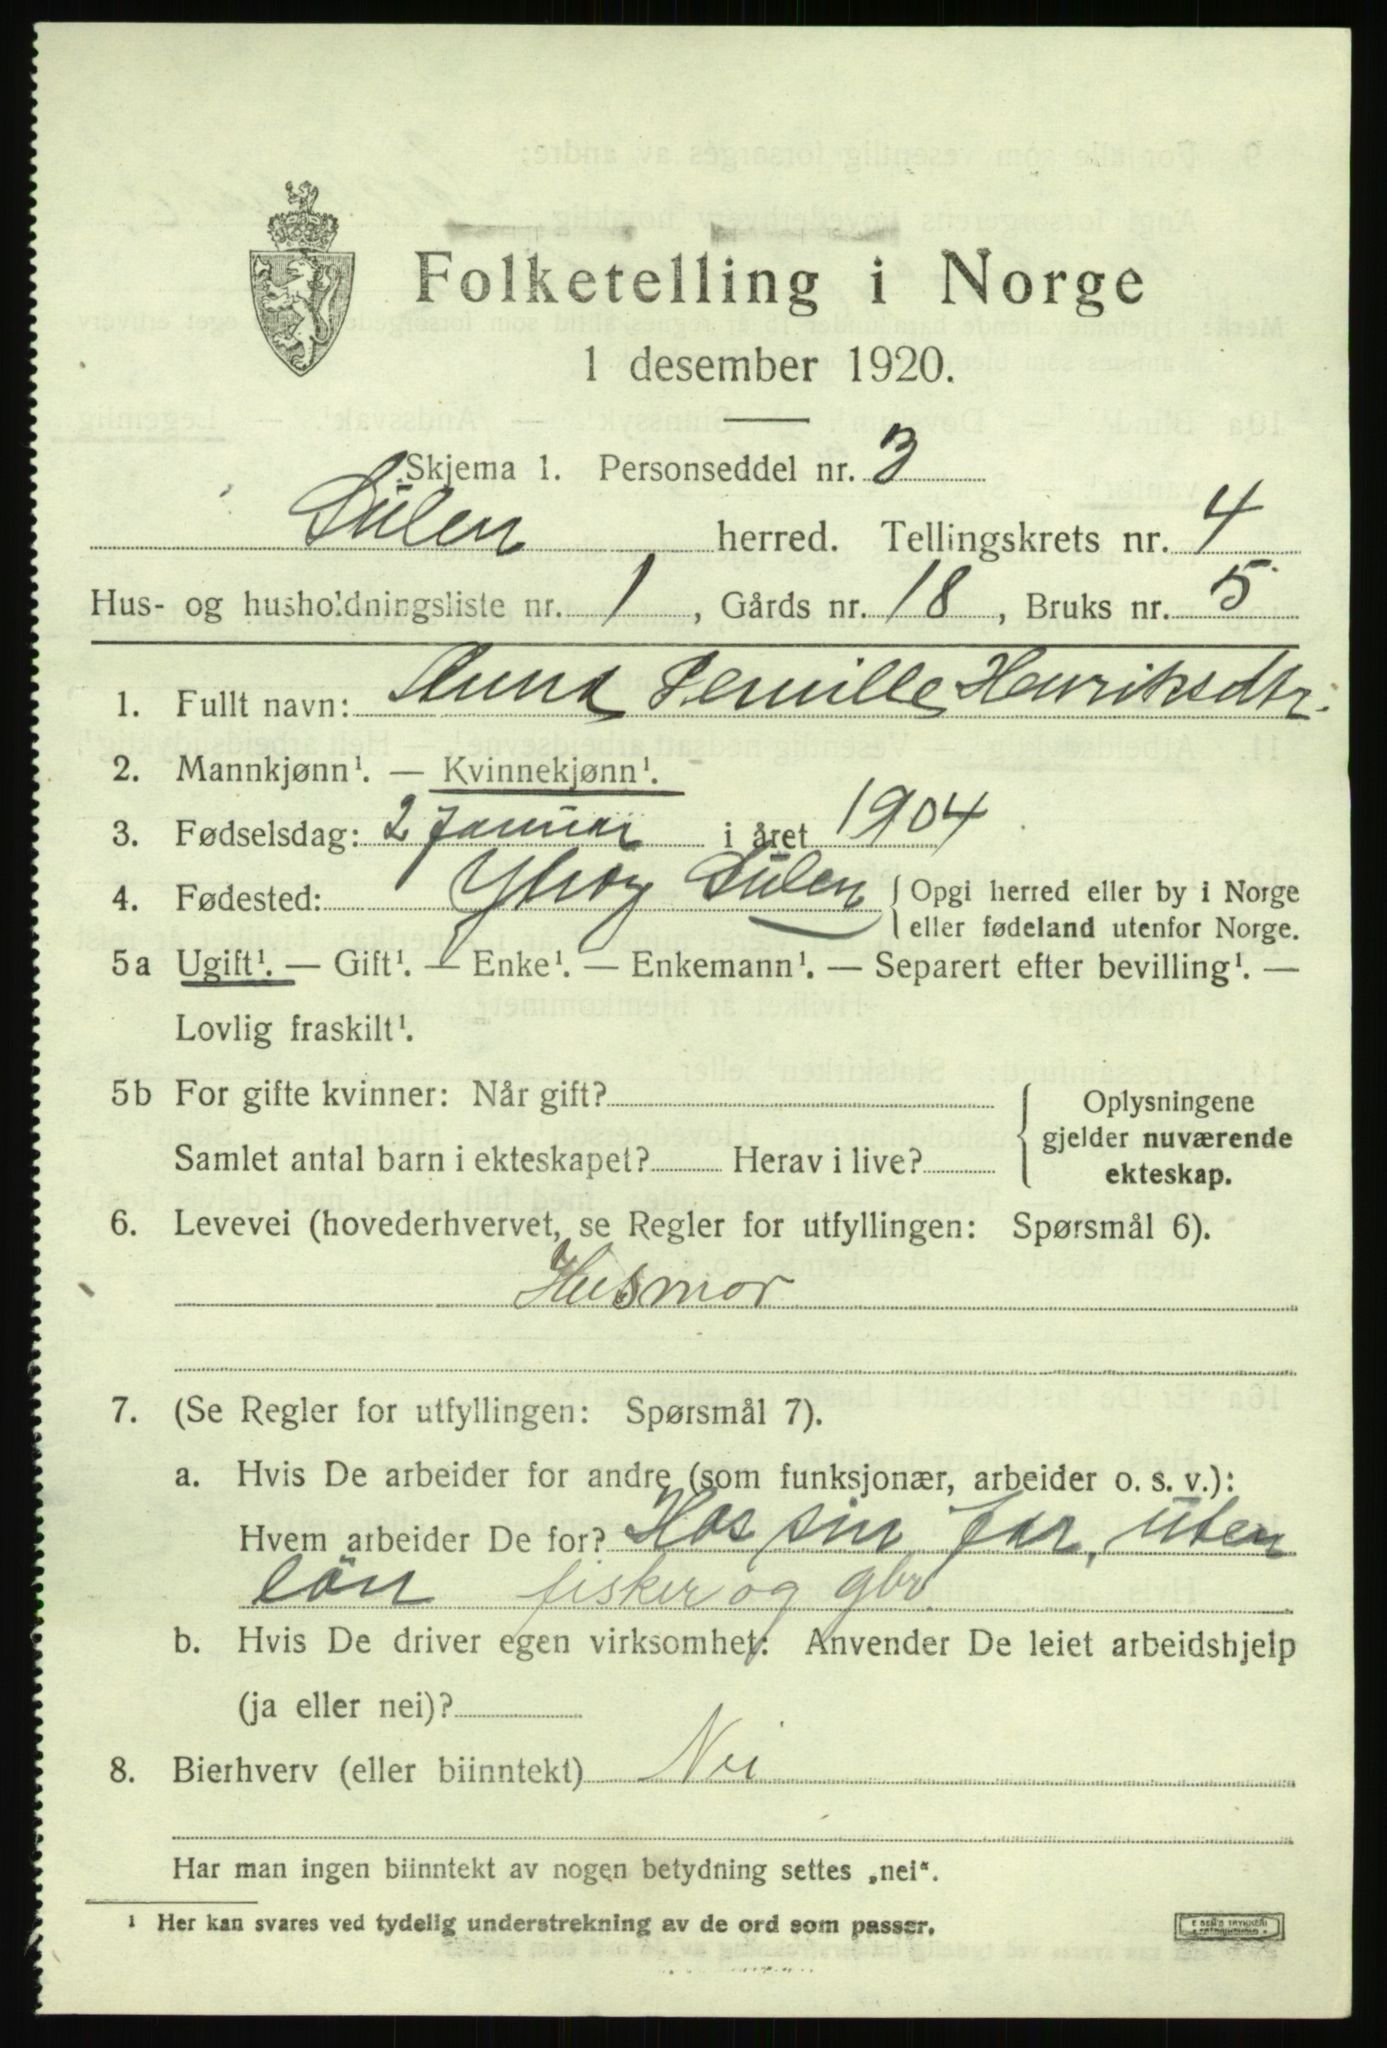 Folketelling i Norge
1 desember 1920.
Skjema 1. Personseddel nr. 3
Sulen herred. Tellingskrets nr. 4
Hus- og husholdningsliste nr. 1, Gårds nr. 18, Bruks nr. 5
1. Fullt navn: Anna Pernille Henriksdtr.
2. Mannkjønn¹. — Kvinnekjønn¹.
3. Fødselsdag: 2 Januar i året 1904
4. Fødested: Ytröy Sulen { Opgi herred eller by i Norge
eller fødeland utenfor Norge.
5a Ugift¹. — Gift¹. — Enke¹. — Enkemann¹. — Separert efter bevilling¹. —
Lovlig fraskilt¹.
5b For gifte kvinner: Når gift? { Oplysningene
gjelder nuværende
Samlet antal barn i ekteskapet? Herav i live? ekteskap.
6. Levevei (hovederhvervet, se Regler for utfyllingen: Spørsmål 6).
Husmor
7. (Se Regler for utfyllingen: Spørsmål 7).
a. Hvis De arbeider for andre (som funksjonær, arbeider o. s. v.):
Hvem arbeider De for? Hos sin far, uten
lön fisker og gbr.
b. Hvis De driver egen virksomhet: Anvender De leiet arbeidshjelp
(ja eller nei)?
8. Bierhverv (eller biinntekt) Nei
Har man ingen biinntekt av nogen betydning settes „nei“.
¹ Her kan svares ved tydelig understrekning av de ord som passer.